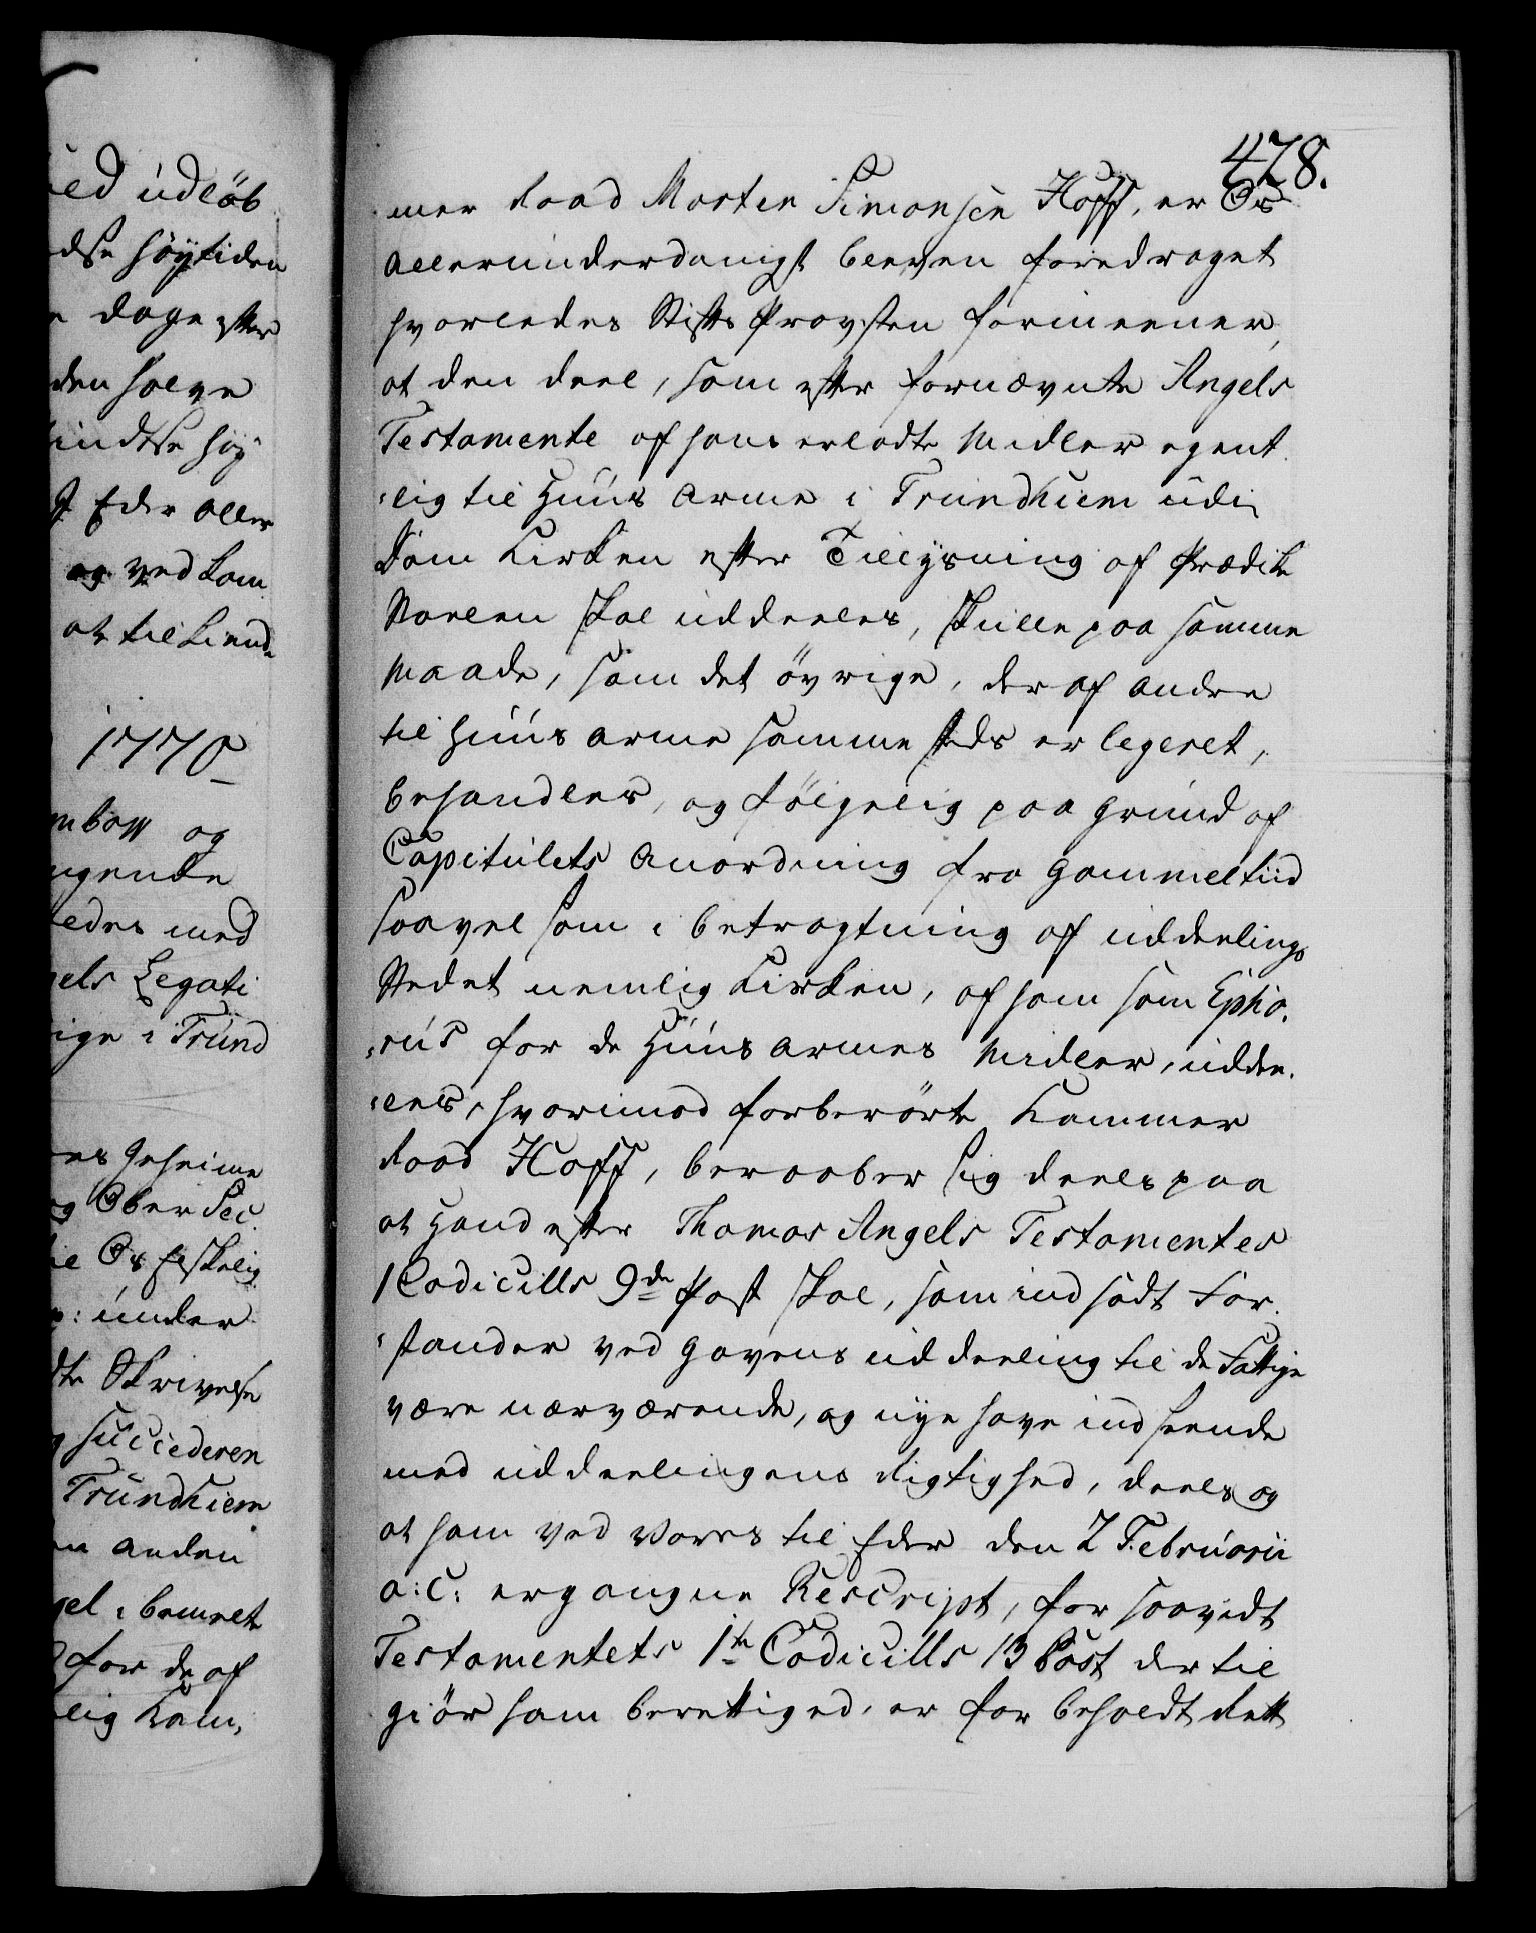 ed udløb
dse høytiden
e dage efter
den halve
indtse høy
Eder aller
og ved kom
at til kiend-
1770
og
ngenke
ledes med
gels Legati
ige i Trund
es Geheime
og Ober Sec.
Os Elskelig
under
dte Skrivelse
succederen
Trundhiem
en anden
gel, bemelt
for de af
lig Kam,
478.
mer Raad Morten Simonsen Hoff, er Os
allerunderdanigst bleven foredraget
hvorledes Stifts Provsten formeener,
at den deel, som efter fornævnte Angels
Testamente af hans erladte Midler egent
:lig til Huus Arme i Trundhiem udi
Dom Kirken efter Tillysning af Prædike
Stoelen skal uddeeles, skulle paa samme
Maade, som det øvrige, der af andre
til Huus arme samme steds er legeret,
behandles, og følgelig paa grund af
Capitulets Anordning fra gammel tiid
saavel som i betragtning af uddeelings
Stedet nemlig Kirken, af ham som Epho.
:rus for de Huus armes Midler, uddee.
:les, hvorimod forberørte Kammer
Raad Hoff, beraaber sig deels paa
at Hand efter Thomas Angels Testamentes
1 Codicills 9de Post skal, som indsadt For.
:stander ved Gavens uddeeling til de Fattige
være nærværende, og nye have indseende
med uddeelingens Rigtighed, deels og
at ham ved Vores til Eder den 2 Februarii
a: c: ergangne Rescript, for saavidt
Testamentets 1te Codicills 13 Post der til
giør ham berettiged, er forbeholdt Rett